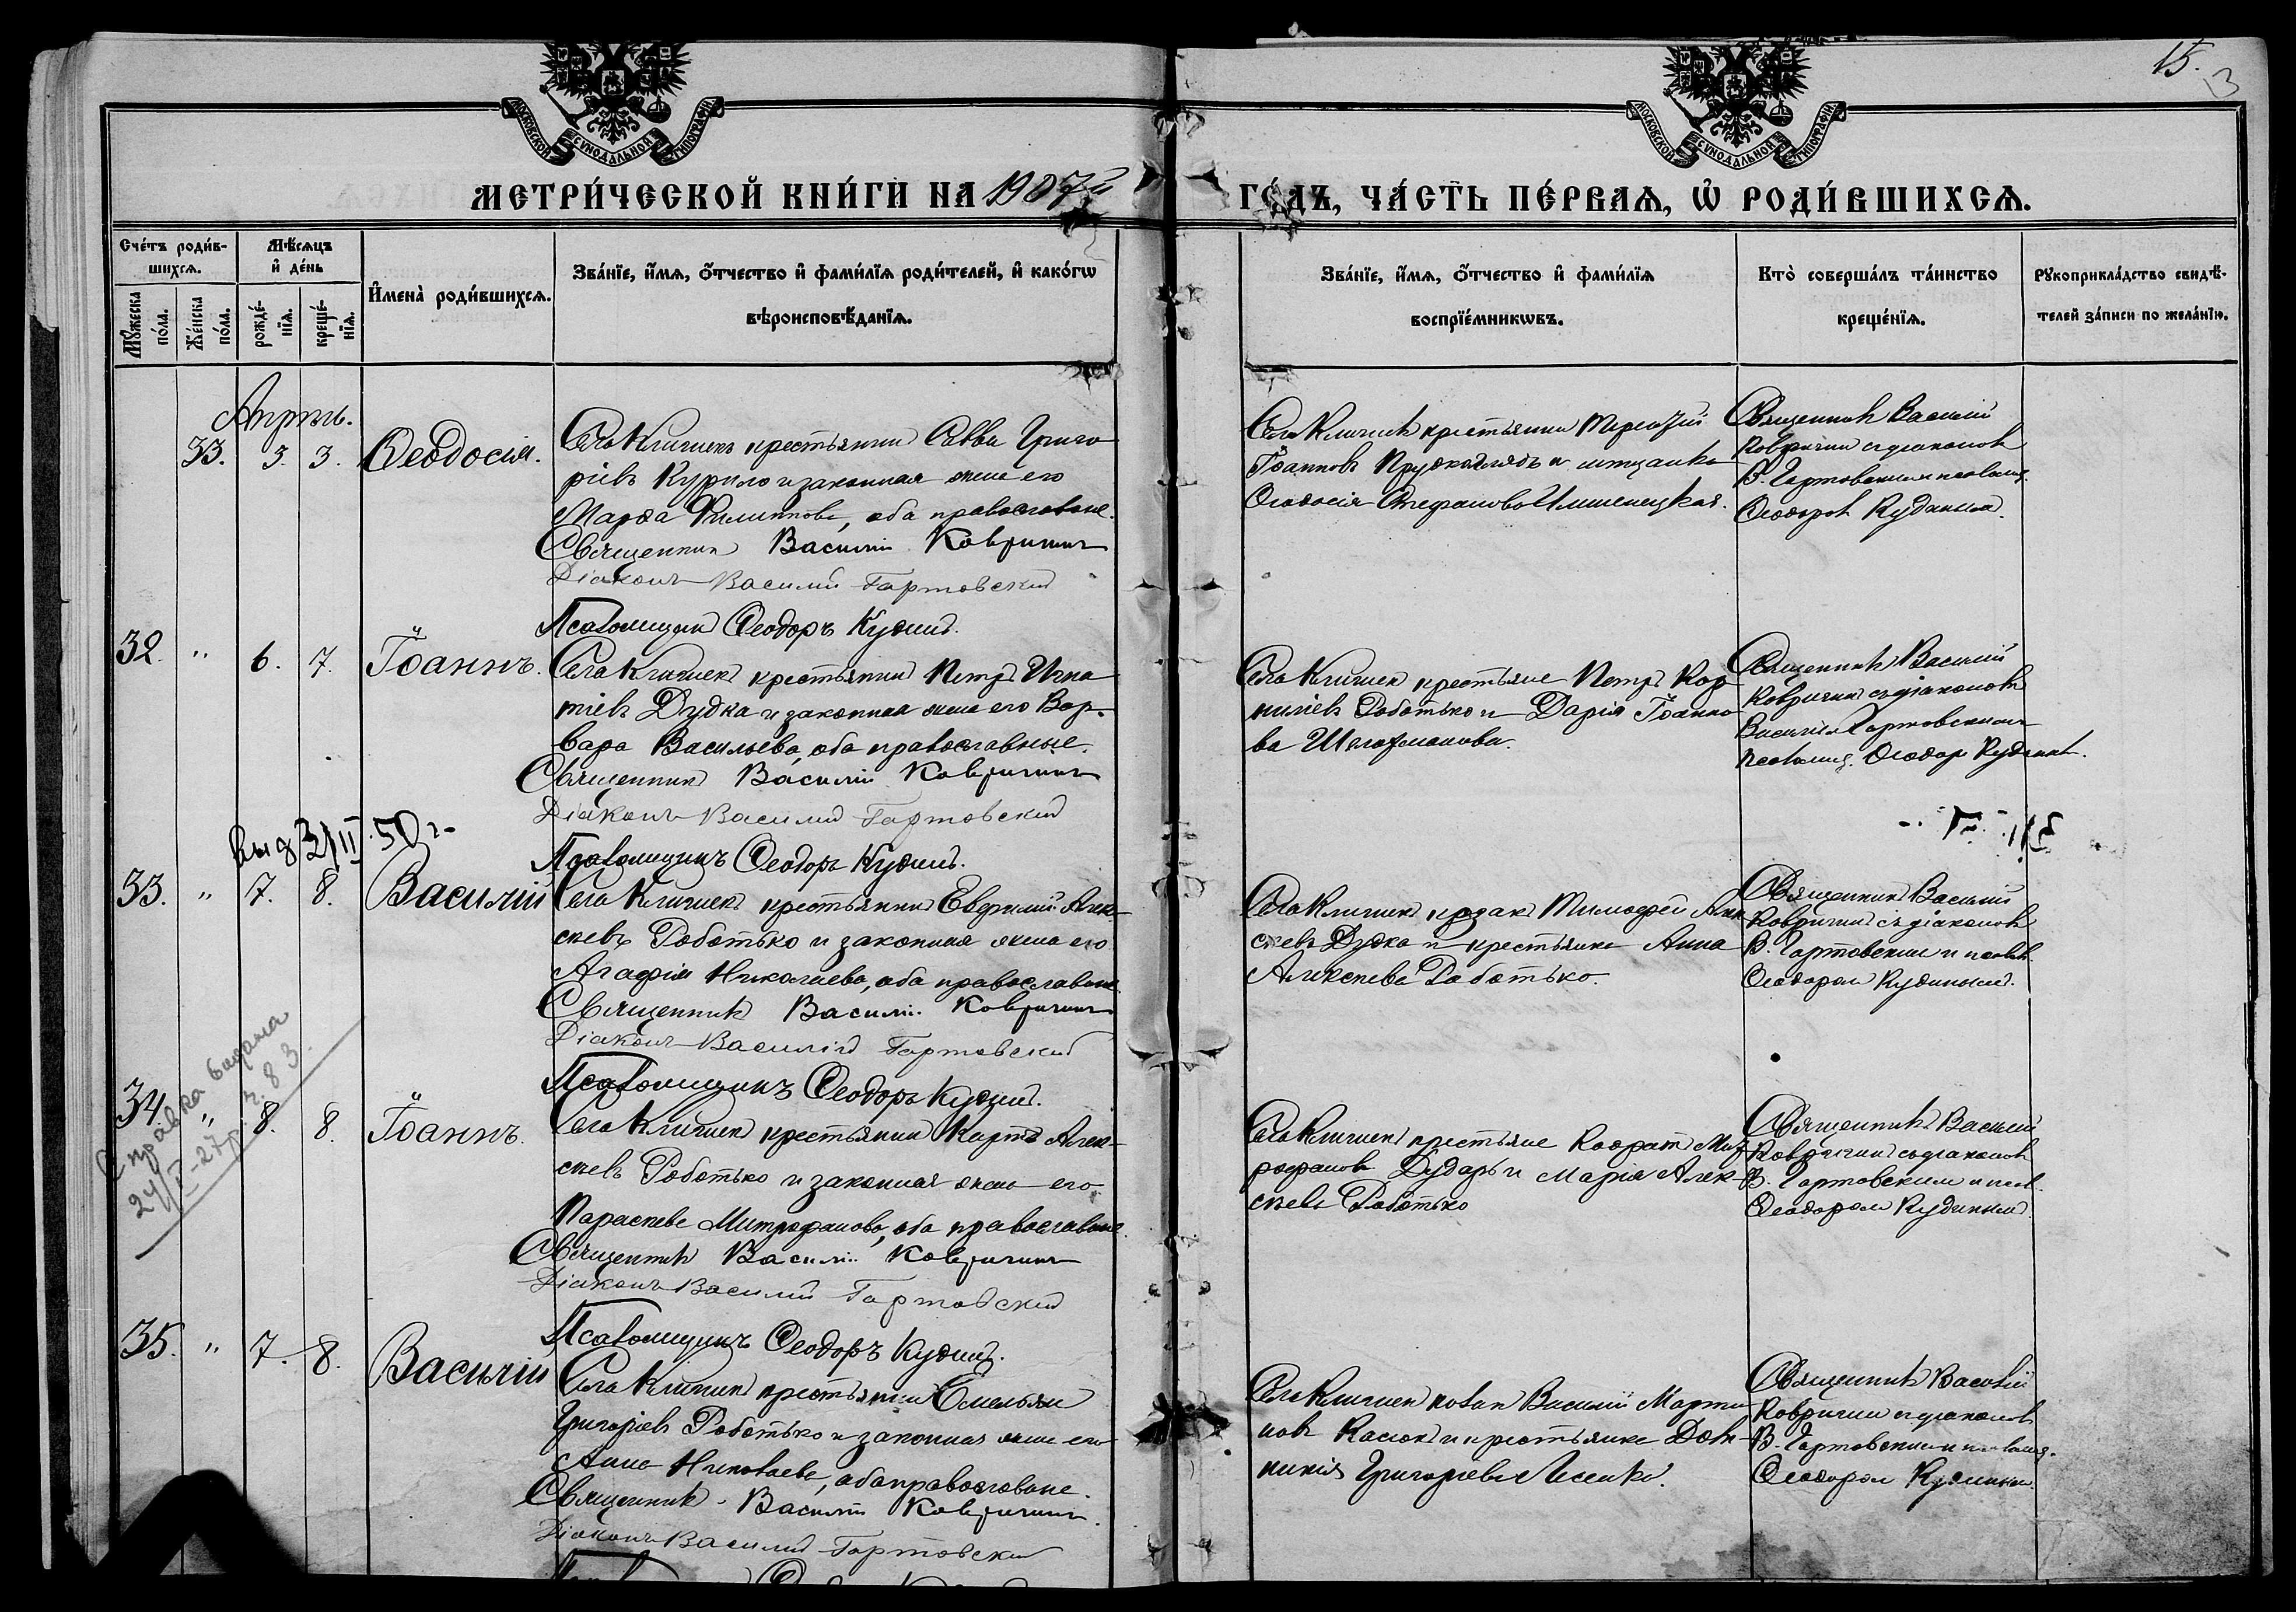 МОСКОВСКОЙ СѴНОДАЛЬНОЙ ТИПОГРАФІИ
МОСКОВСКОЙ СѴНОДАЛЬНОЙ ТИПОГРАФІИ
15.
МЕТРИ́ЧЕСКОЙ КНИ́ГИ НА 1907й ГО́ДЪ, ЧА́СТЬ ПЕ́РВАѦ, Ѡ҆ РОДИ́ВШИХСѦ.
Сче́тъ роди́в-
шихсѧ.
Мѣ́сѧцъ
и҆ де́нь
Мꙋ́жеска
по́ла.
Же́нска
по́ла.
рожде́-
нїѧ.
креще́-
нїѧ.
И҆мена̀ роди́вшихсѧ.
Зва́нїе, и҆́мѧ, ѻ҆́тчество и҆ фами́лїѧ роди́телей, и҆ како́гѡ
вѣроисповѣ́данїѧ.
Зва́нїе, и҆́мѧ, ѻ҆́тчество и҆ фами́лїѧ
воспрїе́мникѡвъ.
Кто̀ соверша́лъ та́инство
креще́нїѧ.
Рꙋкоприкла́дство свидѣ́-
телей за́писи по жела́нїю.
Апрѣль.
33. 3. 3. Ѳеодосія.
Села Клишекъ крестьянинъ Савва Григо-
ріевъ Курило и законная жена его
Марѳа Филиппова, оба православные.
Священникъ Василій Ковригинъ
Діаконъ Василій Гортовский
Псаломщикъ Ѳеодоръ Кудинъ.
Села Клишекъ крестьянинъ
Іоанновъ и мѣщанка
Ѳеодосія Стефанова
Священникъ Василій
Ковригинъ съ діакономъ
В. Гортовскимъ и псаломщ.
Ѳеодоромъ Кудинымъ.
32. " 6. 7. Іоаннъ.
Села Клишекъ крестьянинъ Петръ Игна-
тіевъ Дудка и законная жена его Вар-
вара Васильева, оба православные.
Священникъ Василій Ковригинъ
Діаконъ Василій Гортовский
Псаломщикъ Ѳеодоръ Кудинъ.
Села Клишекъ крестьяне Петръ Кор-
ниліевъ Роботько и Дарія Іоанно-
ва
Священникъ Василій
Ковригинъ съ діакономъ
Василіемъ Гортовскимъ
псаломщ. Ѳеодор. Кудинымъ.
выд 3/II 50 г.
33. " 7. 8. Василій
Села Клишекъ крестьянинъ Евфимій Алек-
сѣевъ Роботько и законная жена его
Агафія Николаева, оба православные.
Священникъ Василій Ковригинъ
Діаконъ Василій Гортовский
Псаломщикъ Ѳеодоръ Кудинъ.
Села Клишекъ козакъ Тимофей Алек-
сѣевъ Дудка и крестьянка Анна
Алексѣева Роботько.
Священникъ Василій
Ковригинъ съ діакономъ
В. Гортовскимъ и псалом.
Ѳеодоромъ Кудинымъ.
Справка видана
24/I-27р. ч. 83.
34. " 8. 8. Іоаннъ.
Села Клишекъ крестьянинъ Карпъ Алек-
сѣевъ Роботько и законная жена его
Параскева Митрофанова, оба православные.
Священникъ Василій Ковригинъ
Діаконъ Василій Гортовский
Псаломщикъ Ѳеодоръ Кудинъ.
Села Клишекъ крестьяне Кодратъ Мит-
рофановъ Дударь и Марія Алек-
сѣева Роботько
Священникъ Василій
Ковригинъ съ діакономъ
В. Гортовскимъ и псал.
Ѳеодоромъ Кудинымъ.
35. " 7. 8. Василій
Села Клишекъ крестьянинъ Емельянъ
Григоріевъ Роботько и законная жена его
Анна Николаева, оба православные.
Священникъ Василій Ковригинъ
Діаконъ Василій Гортовский
Села Клишекъ козакъ Василій Марти-
новъ и крестьянка Дом-
никія Григоріева Лисенко.
Священникъ Василій
Ковригинъ съ діакономъ
В. Гортовскимъ и псаломщ.
Ѳеодоромъ Кудинымъ.